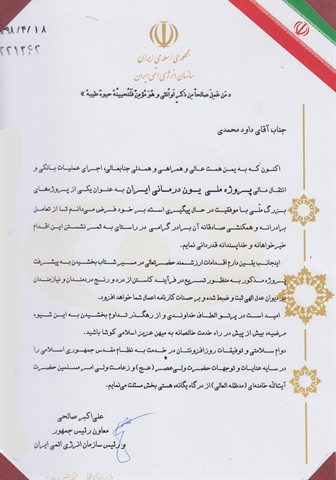 ۹۸/۴/۱۸
۲۲۱۲۶۲
جمهوری اسلامی ایران
سازمان انرژی اتمی ایران
« مَن عَمِلَ صالحاً مِن ذَکَرٍ أو أنثی و هُوَ مُؤمِنٌ فَلَنُحیِیَنَّهُ حیوهً طیبهً »
جناب آقای داود محمدی
اکنون که به یمن همت عالی و همراهی و همدلی جنابعالی، اجرای عملیات بانکی و
انتقال مالی پروژه ملی یون درمانی ایران به عنوان یکی از پروژه‌های
بزرگ ملّی با موفقیت در حال پیگیری است، بر خود فرض می‌دانم تا از تعامل
برادرانه و همکنشی صادقانه آن برادر گرامی در راستای به ثمر نشستن این اقدام
خیرخواهانه و خداپسندانه قدردانی نمایم.
اینجانب یقین دارم اقدامات ارزشمند حضرتعالی در مسیر شتاب بخشیدن به پیشرفت
پروژه مذکور به منظور تسریع در فرآیند کاستن از درد و رنج دردمندان و نیازمندان
در دیوان عدل الهی ثبت و ضبط شده و بر حسنات کارنامه اعمال شما خواهد افزود.
امید است در پرتو الطاف خداوندی و از رهگذر تداوم بخشیدن به این شیوه
مرضیه، بیش از پیش در راه خدمت خالصانه به میهن عزیز اسلامی کوشا باشید.
دوام سلامتی و توفیقات روزافزونتان در خدمت به نظام مقدس جمهوری اسلامی را
در سایه عنایات و توجهات حضرت ولی‌عصر (عج) و زعامت ولی امر مسلمین حضرت
آیت‌الله خامنه‌ای (مدظله العالی) از درگاه یگانه، هستی بخش مسئلت می‌نمایم.
علی‌اکبر صالحی
معاون رئیس جمهور
و رئیس سازمان انرژی اتمی ایران